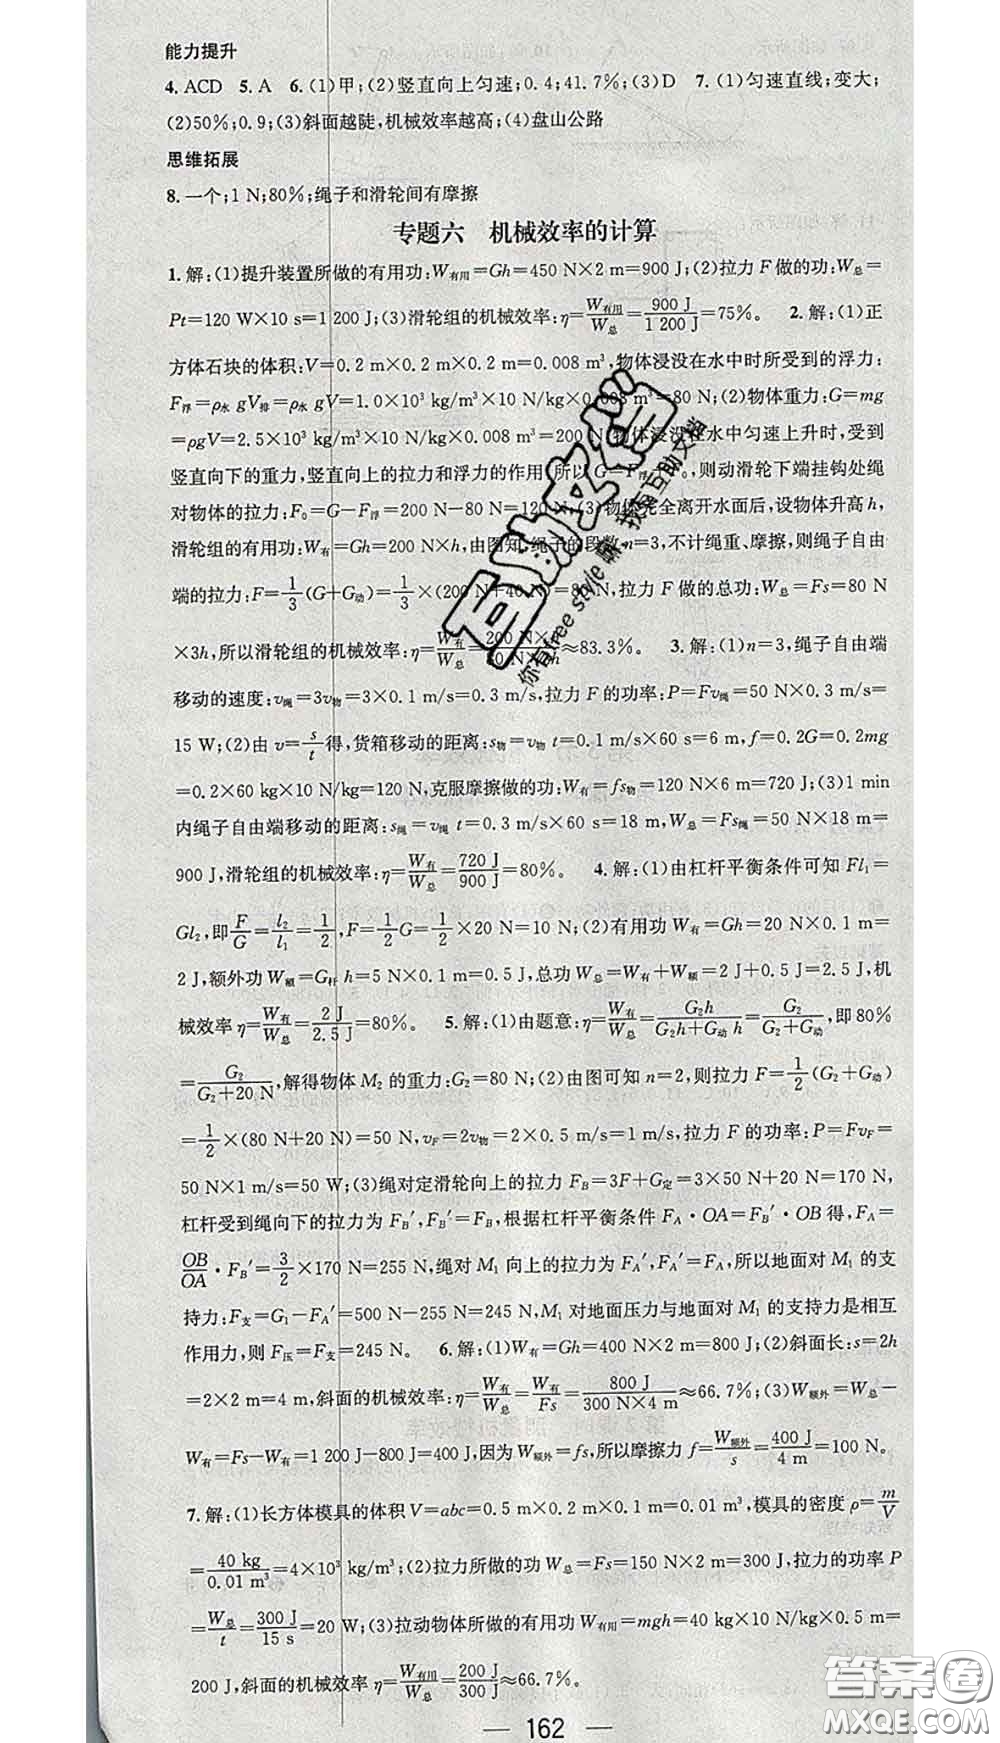 能力提升
4. ACD 5. A 6. (1)甲;(2)竖直向上匀速;0.4;41.7%;(3)D 7. (1)匀速直线;变大;
(2)50%;0.9;(3)斜面越陡,机械效率越高;(4)盘山公路
思维拓展
8. 一个;1 N;80%;绳子和滑轮间有摩擦
专题六 机械效率的计算
1. 解:(1)提升装置所做的有用功:W有用=Gh=450 N×2 m=900 J;(2)拉力 F 做的功:W总=
Pt=120 W×10 s=1 200 J;(3)滑轮组的机械效率:η=W有用/W总=900 J/1 200 J=75%。 2. 解:(1)正
方体石块的体积:V=0.2 m×0.2 m×0.2 m=0.008 m³,物体浸没在水中时所受到的浮力:
F浮=ρ水 gV排=ρ水 gV=1.0×10³ kg/m³×10 N/kg×0.008 m³=80 N;(2)物体重力:G=mg
=ρgV=2.5×10³ kg/m³×10 N/kg×0.008 m³=200 N,物体浸没在水中匀速上升时,受到
竖直向下的重力,竖直向上的拉力和浮力的作用,所以 G=F浮 ,则动滑轮下端挂钩处绳
对物体的拉力:F₀=G-F浮=200 N-80 N=120 N;(3)物体完全离开水面后,设物体升高 h,
滑轮组的有用功:W有=Gh=200 N×h,由图知,绳子的段数 n=3,不计绳重、摩擦,则绳子自由
端的拉力:F=1/3(G+G动)=1/3×(200 N+40 N)=80 N,拉力 F 做的总功:W总=Fs=80 N
×3h,所以滑轮组的机械效率:η=W有/W总=200 N×h/80 N×3h≈83.3%。 3. 解:(1)n=3,绳子自由端
移动的速度:v绳=3v物=3×0.1 m/s=0.3 m/s,拉力 F 的功率:P=Fv绳=50 N×0.3 m/s=
15 W;(2)由 v=s/t得,货箱移动的距离:s物=v物 t=0.1 m/s×60 s=6 m,f=0.2G=0.2mg
=0.2×60 kg×10 N/kg=120 N,克服摩擦做的功:W有=fs物=120 N×6 m=720 J;(3)1 min
内绳子自由端移动的距离:s绳=v绳 t=0.3 m/s×60 s=18 m,W总=Fs绳=50 N×18 m=
900 J,滑轮组的机械效率:η=W有/W总=720 J/900 J=80%。 4. 解:(1)由杠杆平衡条件可知 Fl₁=
Gl₂,即F/G=l₂/l₁=1/2,F=1/2G=1/2×20 N=10 N;(2)有用功 W有=Gh=20 N×0.1 m=
2 J,额外功 W额=G杆 h=5 N×0.1 m=0.5 J,总功 W总=W有+W额=2 J+0.5 J=2.5 J,机
械效率 η=W有/W总=2 J/2.5 J=80%。 5. 解:(1)由题意:η=W有/W总=G₂h/G₂h+G动 h=G₂/G₂+G动,即 80%
=G₂/G₂+20 N,解得物体 M₂ 的重力:G₂=80 N;(2)由图可知 n=2,则拉力 F=1/2(G₂+G动)
=1/2×(80 N+20 N)=50 N,vF=2v物=2×0.5 m/s=1 m/s,拉力 F 的功率:P=FvF=
50 N×1 m/s=50 W;(3)绳对定滑轮向上的拉力 FB=3F+G定=3×50 N+20 N=170 N,
杠杆受到绳向下的拉力为 FB′,FB′=FB,根据杠杆平衡条件 FA·OA=FB′·OB 得,FA=
OB/OA·FB′=3/2×170 N=255 N,绳对 M₁ 向上的拉力为 FA′,FA′=FA,所以地面对 M₁ 的支
持力:F支=G₁-FA′=500 N-255 N=245 N,M₁ 对地面压力与地面对 M₁ 的支持力是相互
作用力,则 F压=F支=245 N。 6. 解:(1)W有=Gh=400 N×2 m=800 J;(2)斜面长:s=2h
=2×2 m=4 m,斜面的机械效率:η=W有/W总=W有/Fs=800 J/300 N×4 m≈66.7%;(3)W额外=W总-
W有=Fs-W有=1 200 J-800 J=400 J,因为 W额外=fs,所以摩擦力 f=W额外/s=400 J/4 m=100 N。
7. 解:(1)长方体模具的体积 V=abc=0.5 m×0.2 m×0.1 m=0.01 m³,模具的密度 ρ=m/V
=40 kg/0.01 m³=4×10³ kg/m³;(2)拉力所做的功 W总=Fs=150 N×2 m=300 J,拉力的功率 P
=W总/t=300 J/15 s=20 W;(3)拉动物体所做的有用功 W有用=mgh=40 kg×10 N/kg×0.5 m=
200 J,斜面的机械效率 η=W有用/W总=200 J/300 J≈66.7%。
— 162 —
答案圈
MXQE.COM